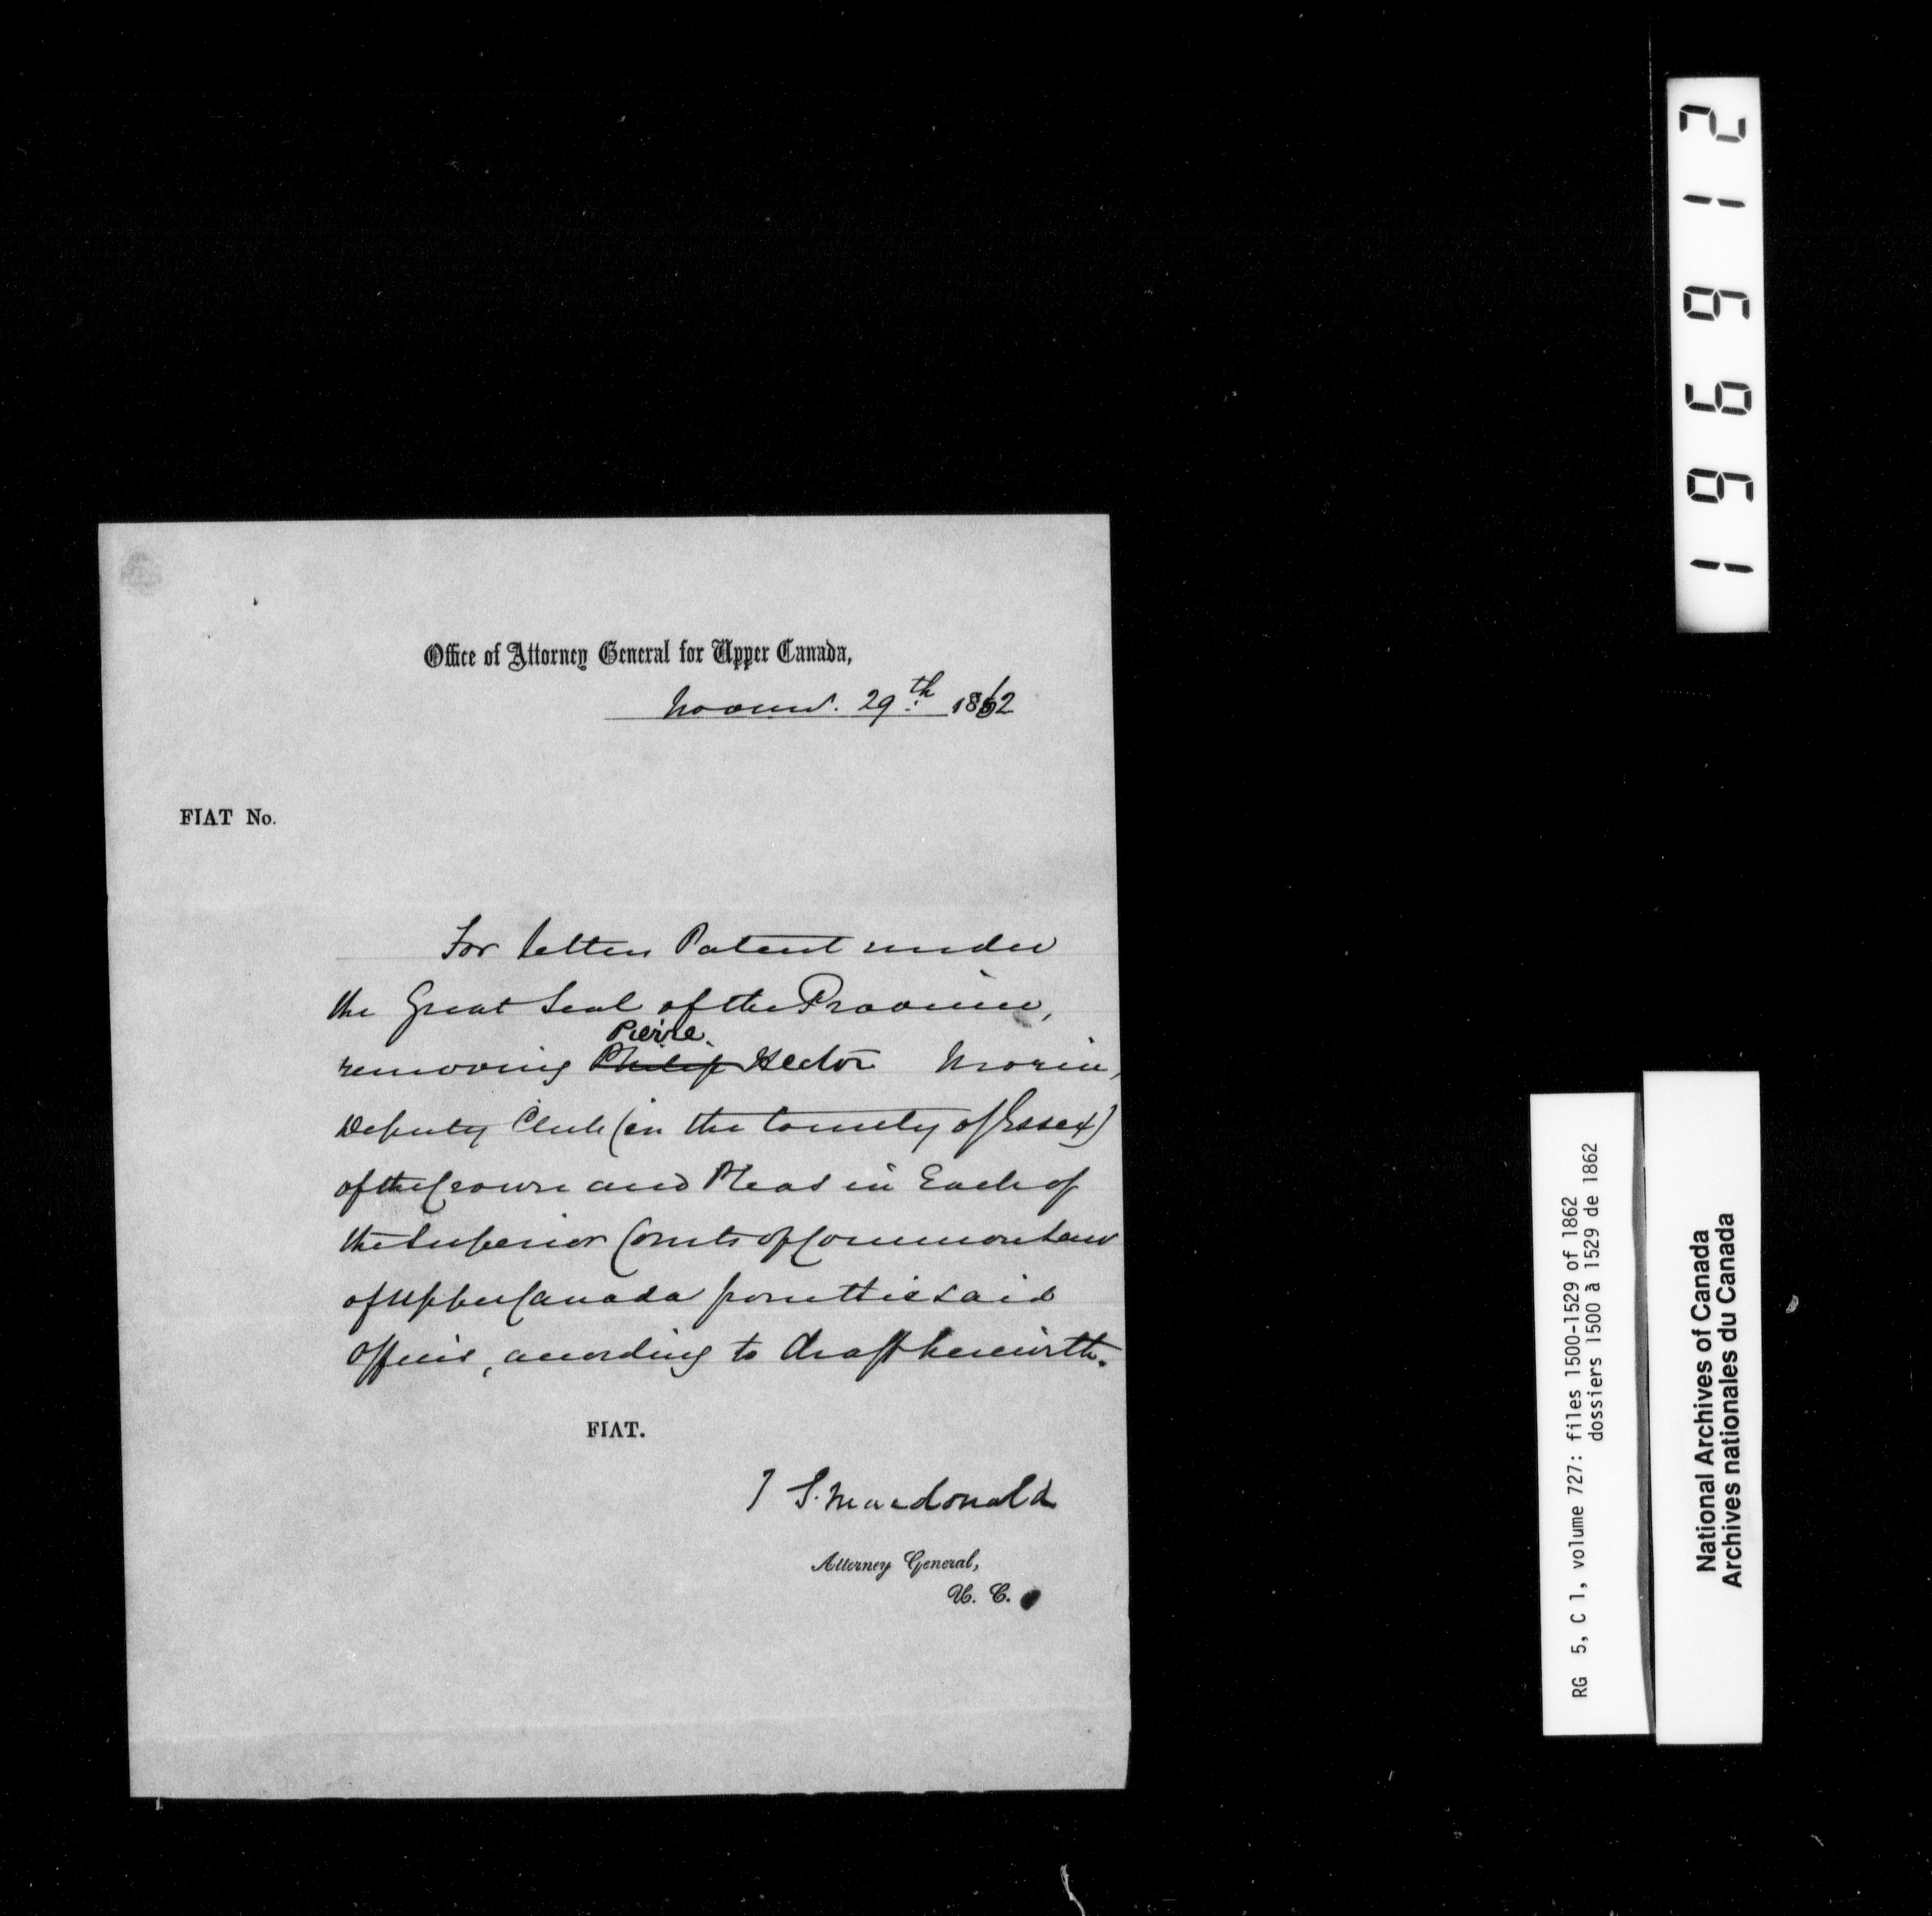 Office of Attorney General for Upper Canada,
29th 1862
FIAT No.
For Letters Patent under
the Great Seal of the Province,
Pierre
removing Philip Hector Morin,
Deputy Clerk (in the County of Essex)
of the Crown and Pleas in Each of
the Superior Courts of Common Law
of Upper Canada from the said
Offices, according to draft herewith.
FIAT.
J S. Macdonald
Attorney General,
U. C.
196912
RG 5, C 1, volume 727: files 1500-1529 of 1862
dossiers 1500 à 1529 de 1862
National Archives of Canada
Archives nationales du Canada